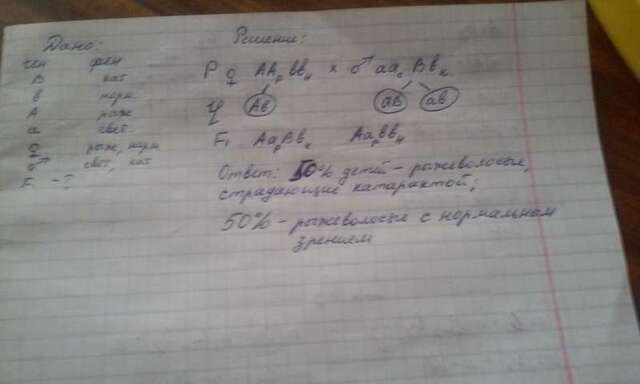 Дано:
ген фен
В кат
в норм
А рыже
а свет.
♀ рыже, норм
♂ свет, кат
F₁ - ?
Решение:
P ♀ AAр ввн x ♂ ааc Ввк
Ав аВ ав
F₁ АарВвк Аарввн
Ответ: 50% детей - рыжеволосые,
страдающие катарактой;
50% - рыжеволосые с нормальным
зрением